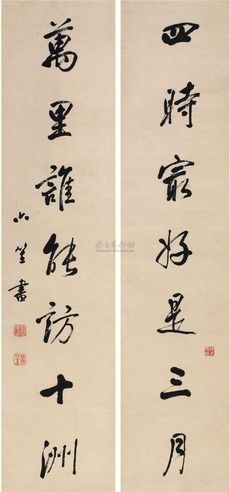 四時最好是三月
萬里誰能訪十洲
小笙書